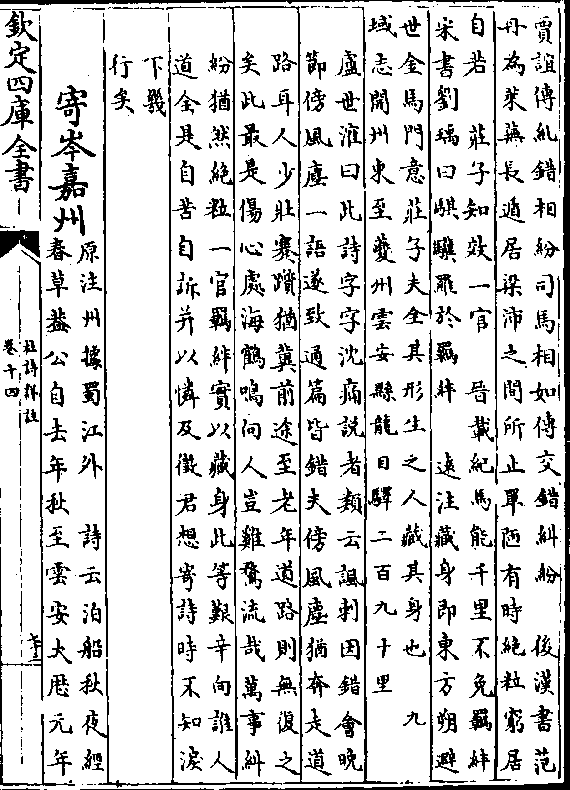 賈誼傳糺錯相紛司馬相如傳交錯糾紛　後漢書范
丹為萊蕪長遁居梁沛之間所止單陋有時絕粒窮居
自若　莊子知效一官　晉載紀馬能千里不免羈絆
宋書劉瑀曰騏驥羅於羈絆　遠注藏身即東方朔避
世金馬門意莊子夫全其形生之人藏其身也　九
域志開州東至夔州雲安縣龍日驛二百九十里
盧世㴶曰此詩字字沈痛說者類云諷刺因錯會晚
節傍風塵一語遂致通篇皆錯夫傍風塵猶奔走道
路耳人少壯蹇躓猶冀前途至老年道路則無復之
矣此最是傷心處海鶴鳴向人豈雞鶩流哉萬事糾
紛猶然絕粒一官羈絆實以藏身此等艱辛向誰人
道全是自苦自訴并以憐及徵君想寄詩時不知淚
下幾
行矣
寄岑嘉州
原注州據蜀江外　詩云泊船秋夜經
春草葢公自去年秋至雲安大厯元年
欽定四庫全書
杜詩詳註
卷十四
七十三